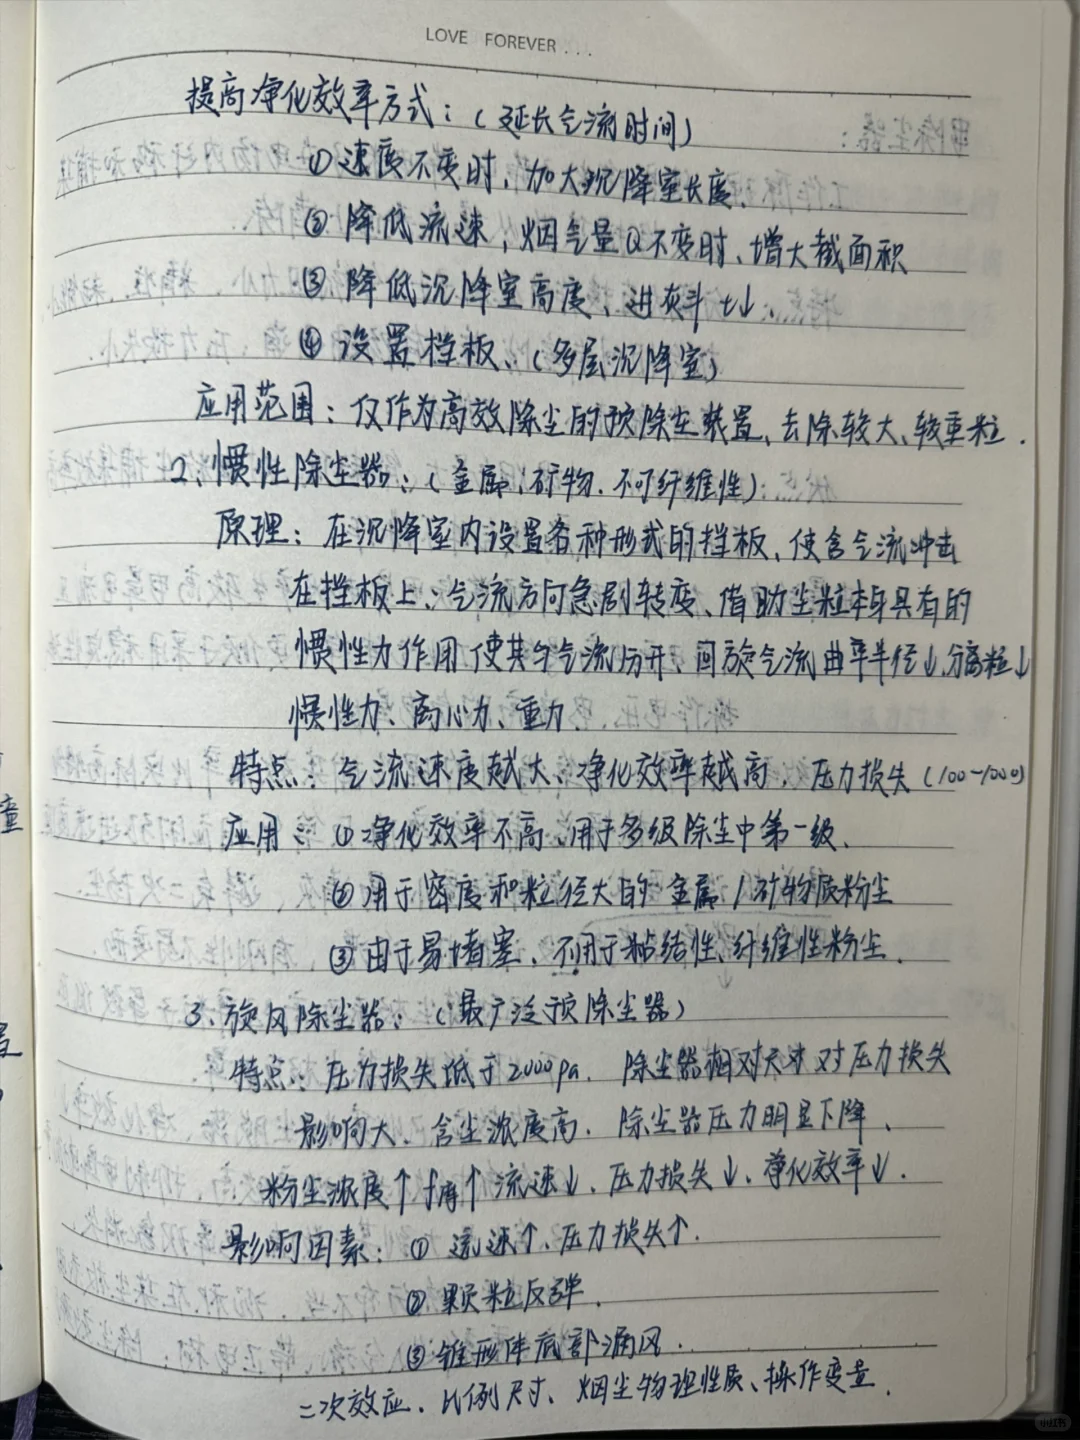 LOVE FOREVER...
提高净化效率方式：（延长气流时间）
①速度不变时，加大沉降室长度、
②降低流速，烟气量Q不变时、增大截面积
③降低沉降室高度、进灰斗 t↓、
④设置挡板、（多层沉降室）
应用范围：仅作为高效除尘的预除尘装置、去除较大、较重粒．
2、惯性除尘器：（金属，矿物．不可纤维性）
原理：在沉降室内设置各种形式的挡板、使含气流冲击
在挡板上、气流方向急剧转变、借助尘粒本身具有的
惯性力作用使其与气流分开，回旋气流曲率半径↓．分离粒↓
惯性力、离心力、重力．
特点：气流速度越大、净化效率越高．压力损失（100-1000）
应用：①净化效率不高、用于多级除尘中第一级、
②用于密度和粒径大的金属/矿物质粉尘
③由于易堵塞、不用于粘结性、纤维性粉尘．
3、旋风除尘器：（最广泛预除尘器）
特点：压力损失低于2000pa．除尘器相对尺寸对压力损失
影响大、含尘浓度高．除尘器压力明显下降、
粉尘浓度↑ f摩↑ 流速↓、压力损失↓、净化效率↓．
影响因素：① 流速↑、压力损失↑．
②颗粒反弹．
③锥形体底部涡风．
二次效应、比例尺寸、烟尘物理性质、操作变量．
童